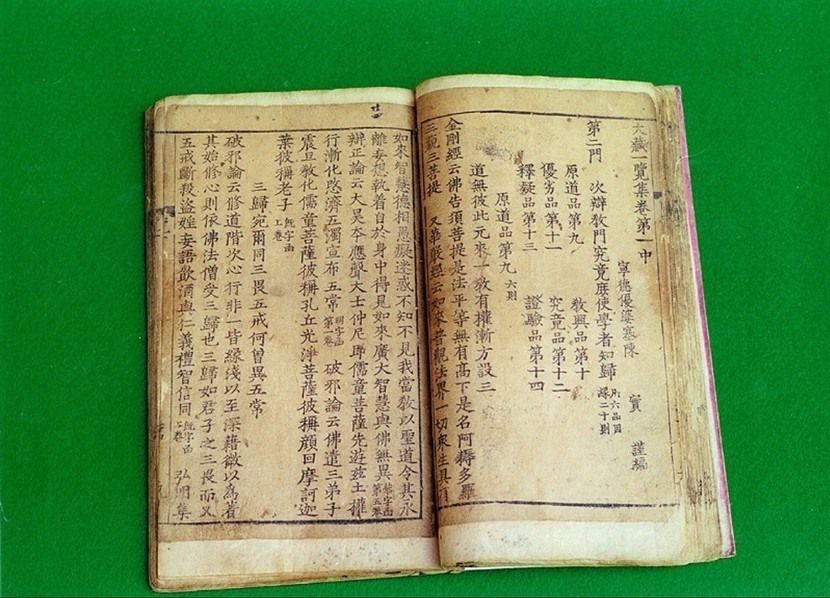 大藏一覽集卷第一中
寧德優婆塞陳 實 謹編
第二門 次辯教門究竟庶使學者知歸 凡六品因緣二十則
原道品第九 教興品第十
優劣品第十一 究竟品第十二
釋疑品第十三 證驗品第十四
原道品第九 六則
道無彼此元來一 教有權漸方設三
金剛經云佛告須菩提是法平等無有高下是名阿耨多羅
三藐三菩提 又華嚴經云如來普觀法界一切衆生具有
廿四
如來智慧德相愚癡迷惑不知不見我當教以聖道令其永
離妄想執着自於身中得見如來廣大智慧與佛無異 第五卷
辨正論云大昊本應聲大士仲尼即儒童菩薩先遊茲土權
行漸化愍濟五濁宣布五常 明字函第一卷 破邪論云佛遣三弟子
震旦教化儒童菩薩彼稱孔丘光淨菩薩彼稱顏回摩訶迦
葉彼稱老子 旣字函上卷
三歸宛爾同三畏五戒何曾異五常
破邪論云修道階次心行非一皆緣淺以至深藉微以爲著
其始修心則依佛法僧受三歸也三歸如君子之三畏而又
五戒斷殺盜婬妄語飲酒與仁義禮智信同 旣字函上卷 弘明集